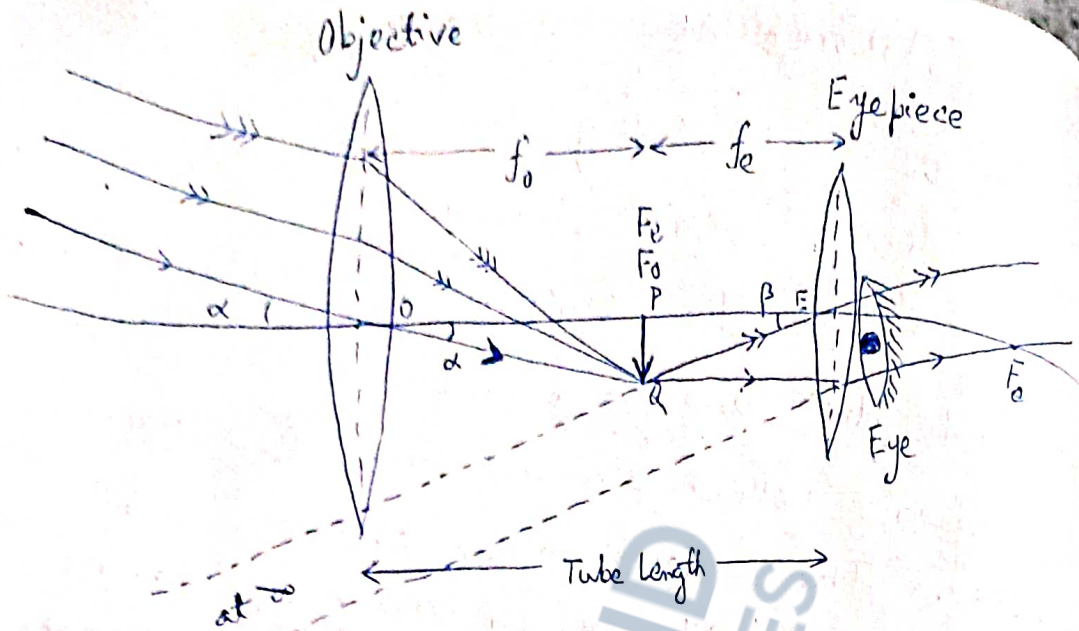 Objective
Eyepiece
f₀
fₑ
Fₑ
F₀
P
α
O
β
E
α
Q
Fₑ
Eye
Tube length
at ∞